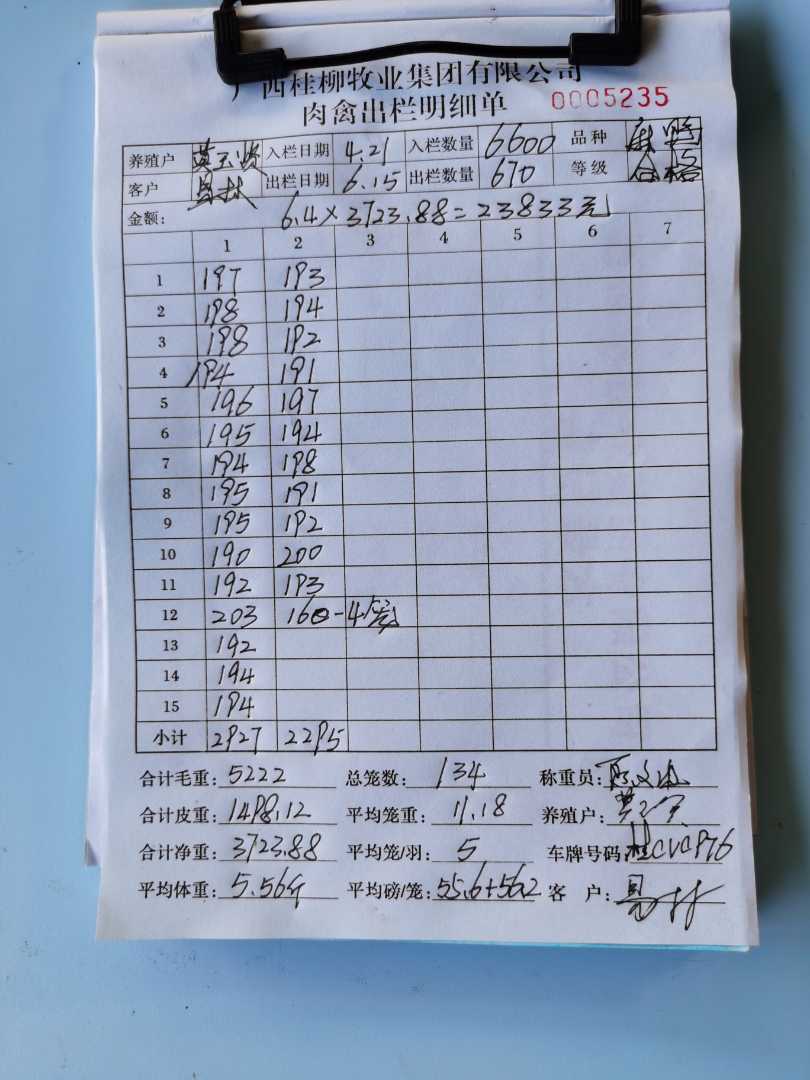 广西桂柳牧业集团有限公司
肉禽出栏明细单 0005235
养殖户 黄 入栏日期 4.21 入栏数量 6600 品种 麻鸭
客户 林 出栏日期 6.15 出栏数量 670 等级 合格
金额: 6.4×3723.88=23833元
1 2 3 4 5 6 7
1 197 193
2 198 194
3 198 192
4 194 191
5 196 197
6 195 194
7 194 198
8 195 191
9 195 192
10 190 200
11 192 193
12 203 160-4
13 192
14 194
15 194
小计 2927 2295
合计毛重: 5222 总笼数: 134 称重员:
合计皮重: 1498.12 平均笼重: 11.18 养殖户:
合计净重: 3723.88 平均笼/羽: 5 车牌号码: 桂CVC976
平均体重: 5.56斤 平均磅/笼: 55.6+562 客 户: